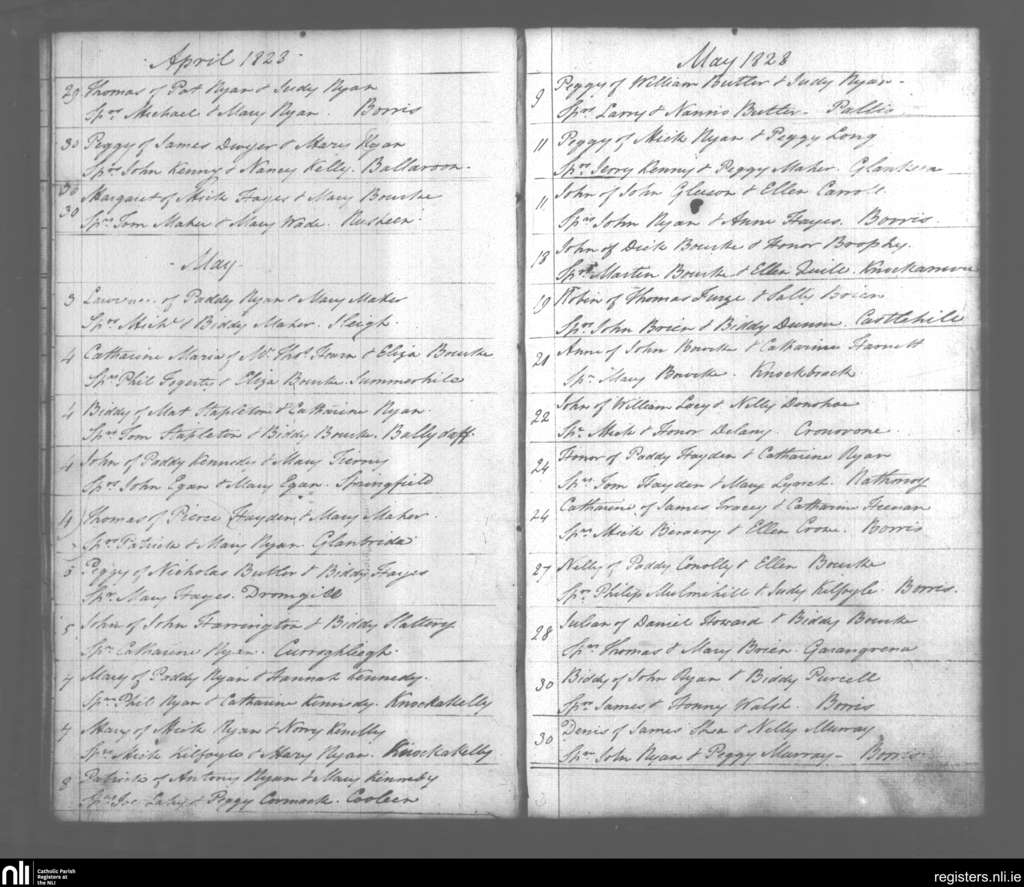 April 1828
29 Thomas of Pat Ryan & Judy Ryan
Sprs Michael & Mary Ryan. Borris
30 Peggy of James Dwyer & Mary Ryan
Sprs John Kenny & Nancy Kelly. Ballaroon.
30
30 Margaret of Mick Hayes & Mary Bourke
Sprs Tom Maher & Mary Wade. Rusheen
May
3 Lawrence of Paddy Ryan & Mary Maher
Sprs Michl & Biddy Maher. Sleigh.
4 Catharine Maria of Mr Thos & Eliza Bourke
Sprs Phil Fogerty & Eliza Bourke. Summerhile
4 Biddy of Mat Stapleton & Catharine Ryan.
Sprs Tom Stapleton & Biddy Bourke. Ballyduff.
4 John of Paddy Kennedy & Mary Tierny
Sprs John Egan & Mary Egan. Springfield
4 Thomas of Pierce Hayden & Mary Maher.
Sprs Patrick & Mary Ryan. Glantrida
5 Peggy of Nicholas Butler & Biddy Hayes
Spr. Mary Hayes. Dromgill
5 John of John Harrington & Biddy Slattery
Spr Catharine Ryan. Curraghleagh.
7 Mary of Paddy Ryan & Hannah Kennedy.
Sprs Phil Ryan & Catharine Kennedy. Knockakelly
7 Mary of Mick Ryan & Nony
Sprs Mick Kilfoyle & Mary Ryan. Knockakelly
8 Patrick of Antony Ryan & Mary Kennedy
Sprs Joe Lahy & Peggy Cormack. Cooleen
May 1828
9 Peggy of William Butler & Judy Ryan
Sprs Larry & Nannis Butler. Pallis
11 Peggy of Mick Ryan & Peggy Long
Sprs Jerry Kenny & Peggy Maher.
11 John of John Gleeson & Ellen Carroll.
Sprs John Ryan & Anne Hayes. Borris.
13 John of Dick Bourke & Honor Boophy.
Sprs Martin Bourke & Ellen Quill.
19 Robin of Thomas & Sally Brien
Sprs John Brien & Biddy Dunne. Castlehile
20 Anne of John Bourke & Catharine Harnett
Spr Mary Bourke. Knockbrack
22 John of William Lacy & Nelly Donohoe
Sprs Mick & Honor Delany. Cronovone.
24 Honor of Paddy Hayden & Catharine Ryan
Sprs Tom Hayden & Mary Lynch. Rathmoy
24 Catharine of James Tracey & Catharine Heenan
Sprs Mick & Ellen Crone. Borris
27 Nelly of Paddy Conolly & Ellen Bourke
Sprs Philip Mulmihill & Judy Kilfoyle. Borris.
28 Julian of Daniel Howard & Biddy Bourke
Sprs Thomas & Mary Brien. Garangrena
30 Biddy of John Ryan & Biddy Purcell
Sprs James & Honny Walsh. Borris
30 Denis of James Shea & Nelly Murray
Sprs John Ryan & Peggy Murray. Borris
nli
Catholic Parish
Registers at
the NLI
registers.nli.ie